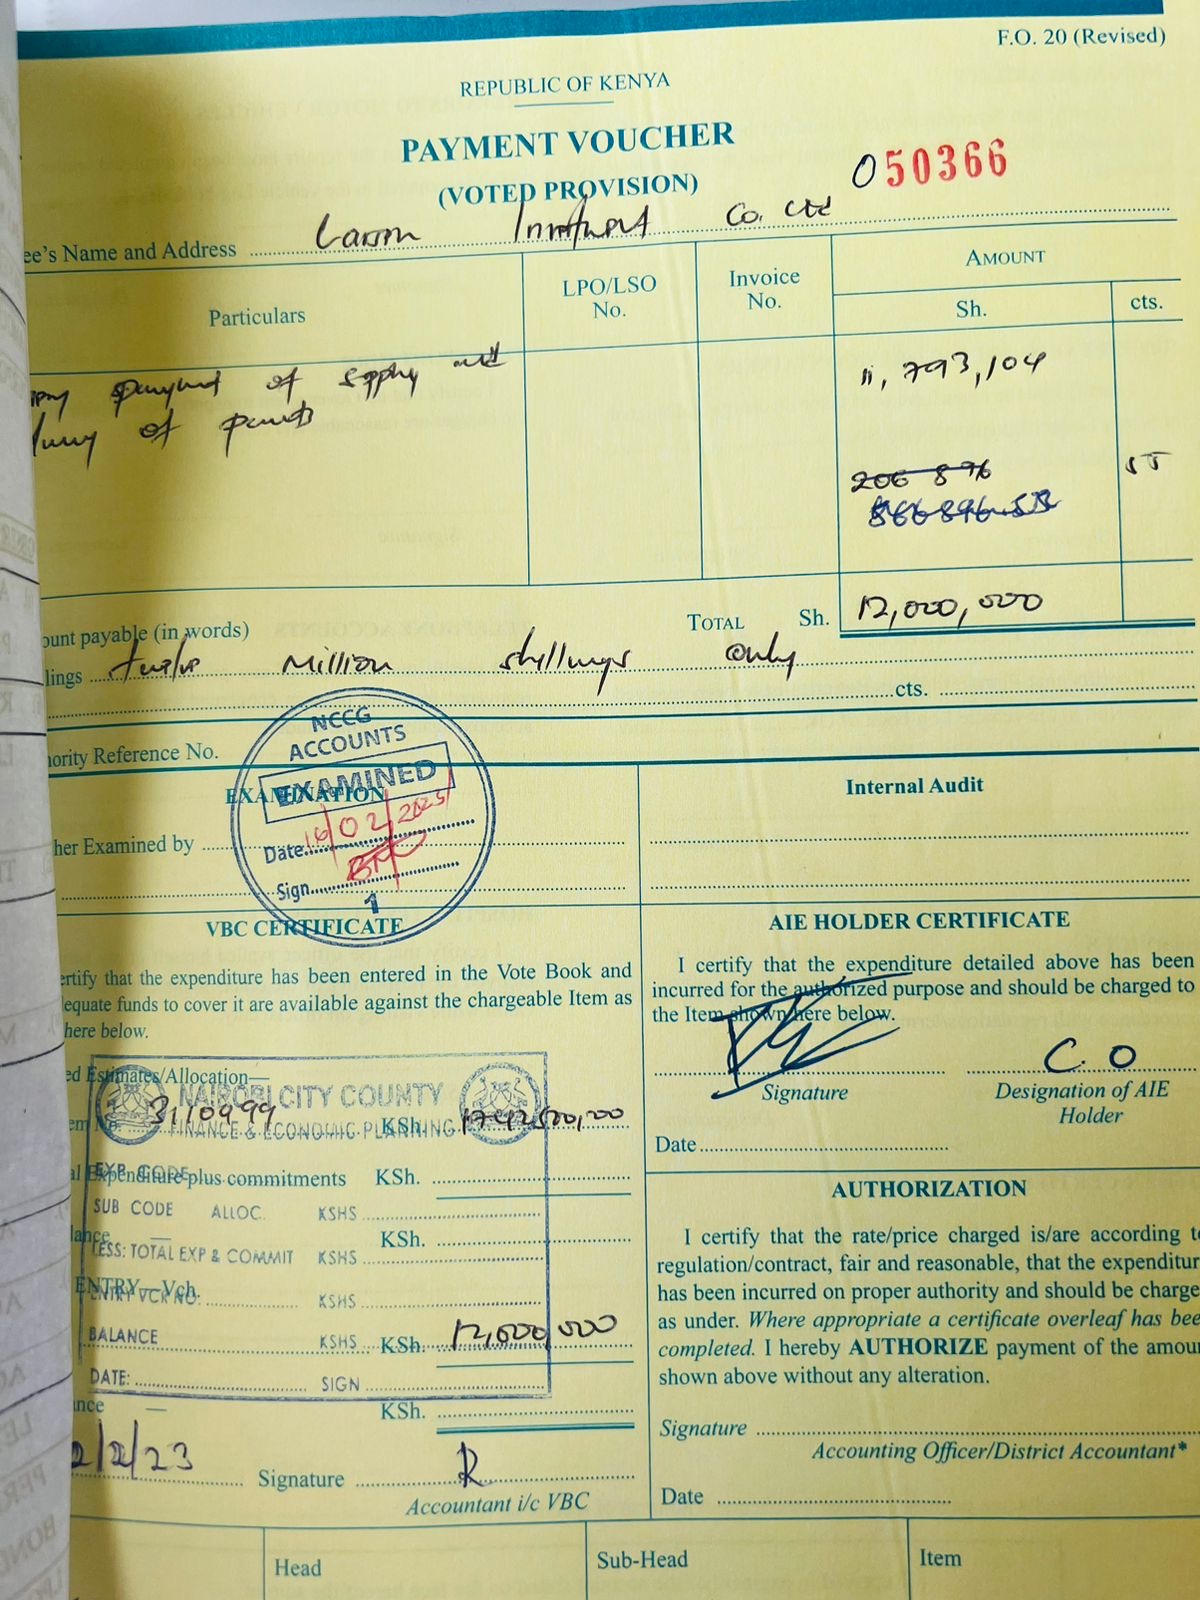 F.O. 20 (Revised)
REPUBLIC OF KENYA
PAYMENT VOUCHER
(VOTED PROVISION)
050366
ee's Name and Address Co. Ltd
Particulars
LPO/LSO No.
Invoice No.
AMOUNT
Sh.
cts.
payment of supply and
of paints
11,793,104
206 896
55
866896.55
ount payable (in words)
TOTAL Sh. 12,000,000
lings twelve Million shillings Only
cts.
hority Reference No.
NCCG
ACCOUNTS
EXAMINED
Date
Sign
1
EXAMINATION
Internal Audit
her Examined by
VBC CERTIFICATE
ertify that the expenditure has been entered in the Vote Book and
equate funds to cover it are available against the chargeable Item as
here below.
AIE HOLDER CERTIFICATE
I certify that the expenditure detailed above has been
incurred for the authorized purpose and should be charged to
the Item shown here below.
Signature
C.O
Designation of AIE
Holder
Date
ed Estimates/Allocation—
NAIROBI CITY COUNTY
FINANCE & ECONOMIC PLANNING
em No. 3110999 KSh.
EXP. CODE
al Expenditure plus commitments KSh.
SUB CODE ALLOC. KSHS
lance — KSh.
LESS: TOTAL EXP & COMMIT KSHS
ENTRY—Vch.
ENTRY VCR NO. KSHS
BALANCE KSHS KSh. 12,000,000
DATE: SIGN
nce — KSh.
2/2/23 Signature
Accountant i/c VBC
AUTHORIZATION
I certify that the rate/price charged is/are according to
regulation/contract, fair and reasonable, that the expenditur
has been incurred on proper authority and should be charge
as under. Where appropriate a certificate overleaf has bee
completed. I hereby AUTHORIZE payment of the amou
shown above without any alteration.
Signature
Accounting Officer/District Accountant*
Date
Head
Sub-Head
Item